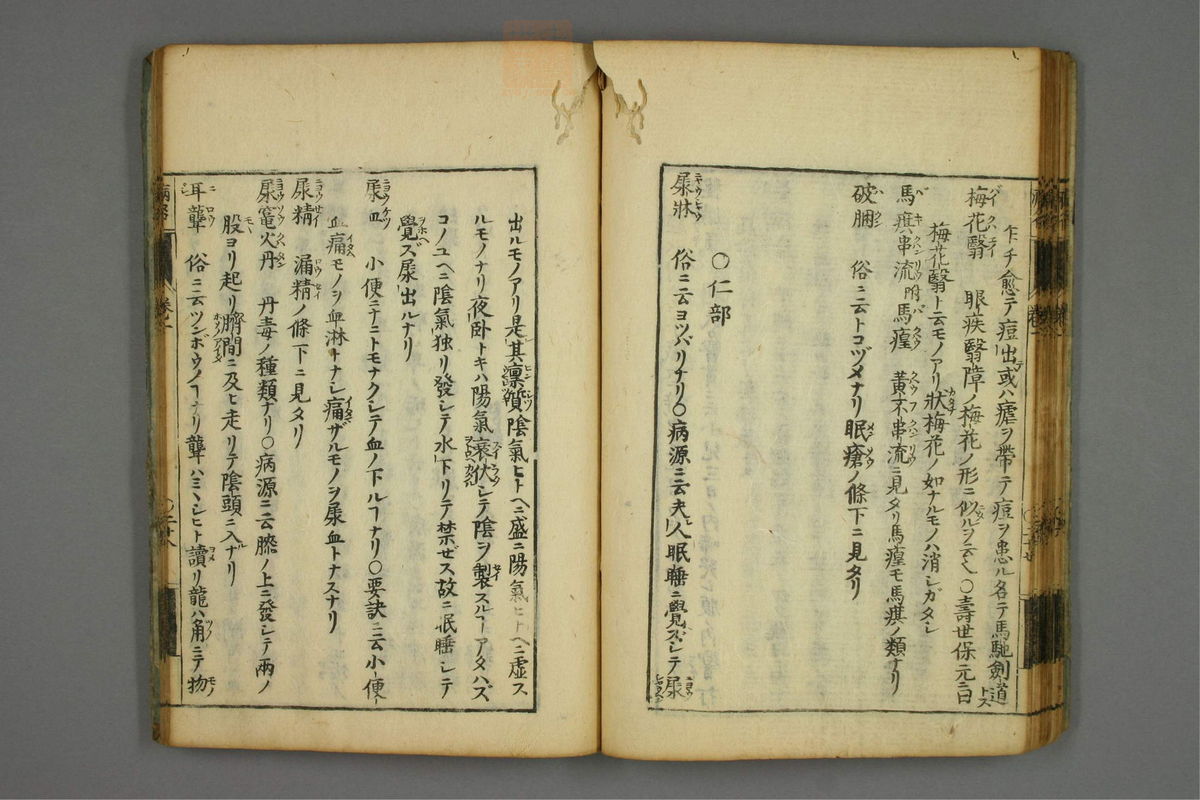 乍チ愈テ痘出或ハ瘧ヲ帶テ痘ヲ患ル名テ馬馳劍道トス
梅花翳 眼疾翳障ノ梅花ノ形ニ似ルヲ云 〇壽世保元ニ曰
梅花翳ト云モノアリ狀梅花ノ如ナルモノハ消シガタシ
馬㾵串流附馬㾮 黄不串流ニ見タリ馬㾮モ馬㾵ノ類ナリ
破胭 俗ニ云トコヅメナリ眠瘡ノ條下ニ見タリ
〇仁部
尿牀 俗ニ云ヨツバリナリ〇病源ニ云夫人眠睡ニ覺ズシテ尿
出ルモノアリ是其稟質陰氣ヒトヘニ盛ニ陽氣ヒトヘニ虚ス
ルモノナリ夜卧トキハ陽氣衰伏シテ陰ヲ製スルヿアタハズ
コノユヘニ陰氣独リ發シテ水下リテ禁ゼス故ニ眠睡シテ
覺ズ尿出ルナリ
尿血 小便ニナニトモナクシテ血ノ下ルヿナリ〇要訣ニ云小便
血痛モノヲ血淋トナシ痛ザルモノヲ尿血トナスナリ
尿精 漏精ノ條下ニ見タリ
尿竈火丹 丹毒ノ種類ナリ〇病源ニ云膝ノ上ニ發シテ兩ノ
股ヨリ起リ臍間ニ及ヒ走リテ陰頭ニ入ナリ
耳聾 俗ニ云ツンボウノヿナリ聾ハミヽシヒト讀リ龍ハ角ニテ物